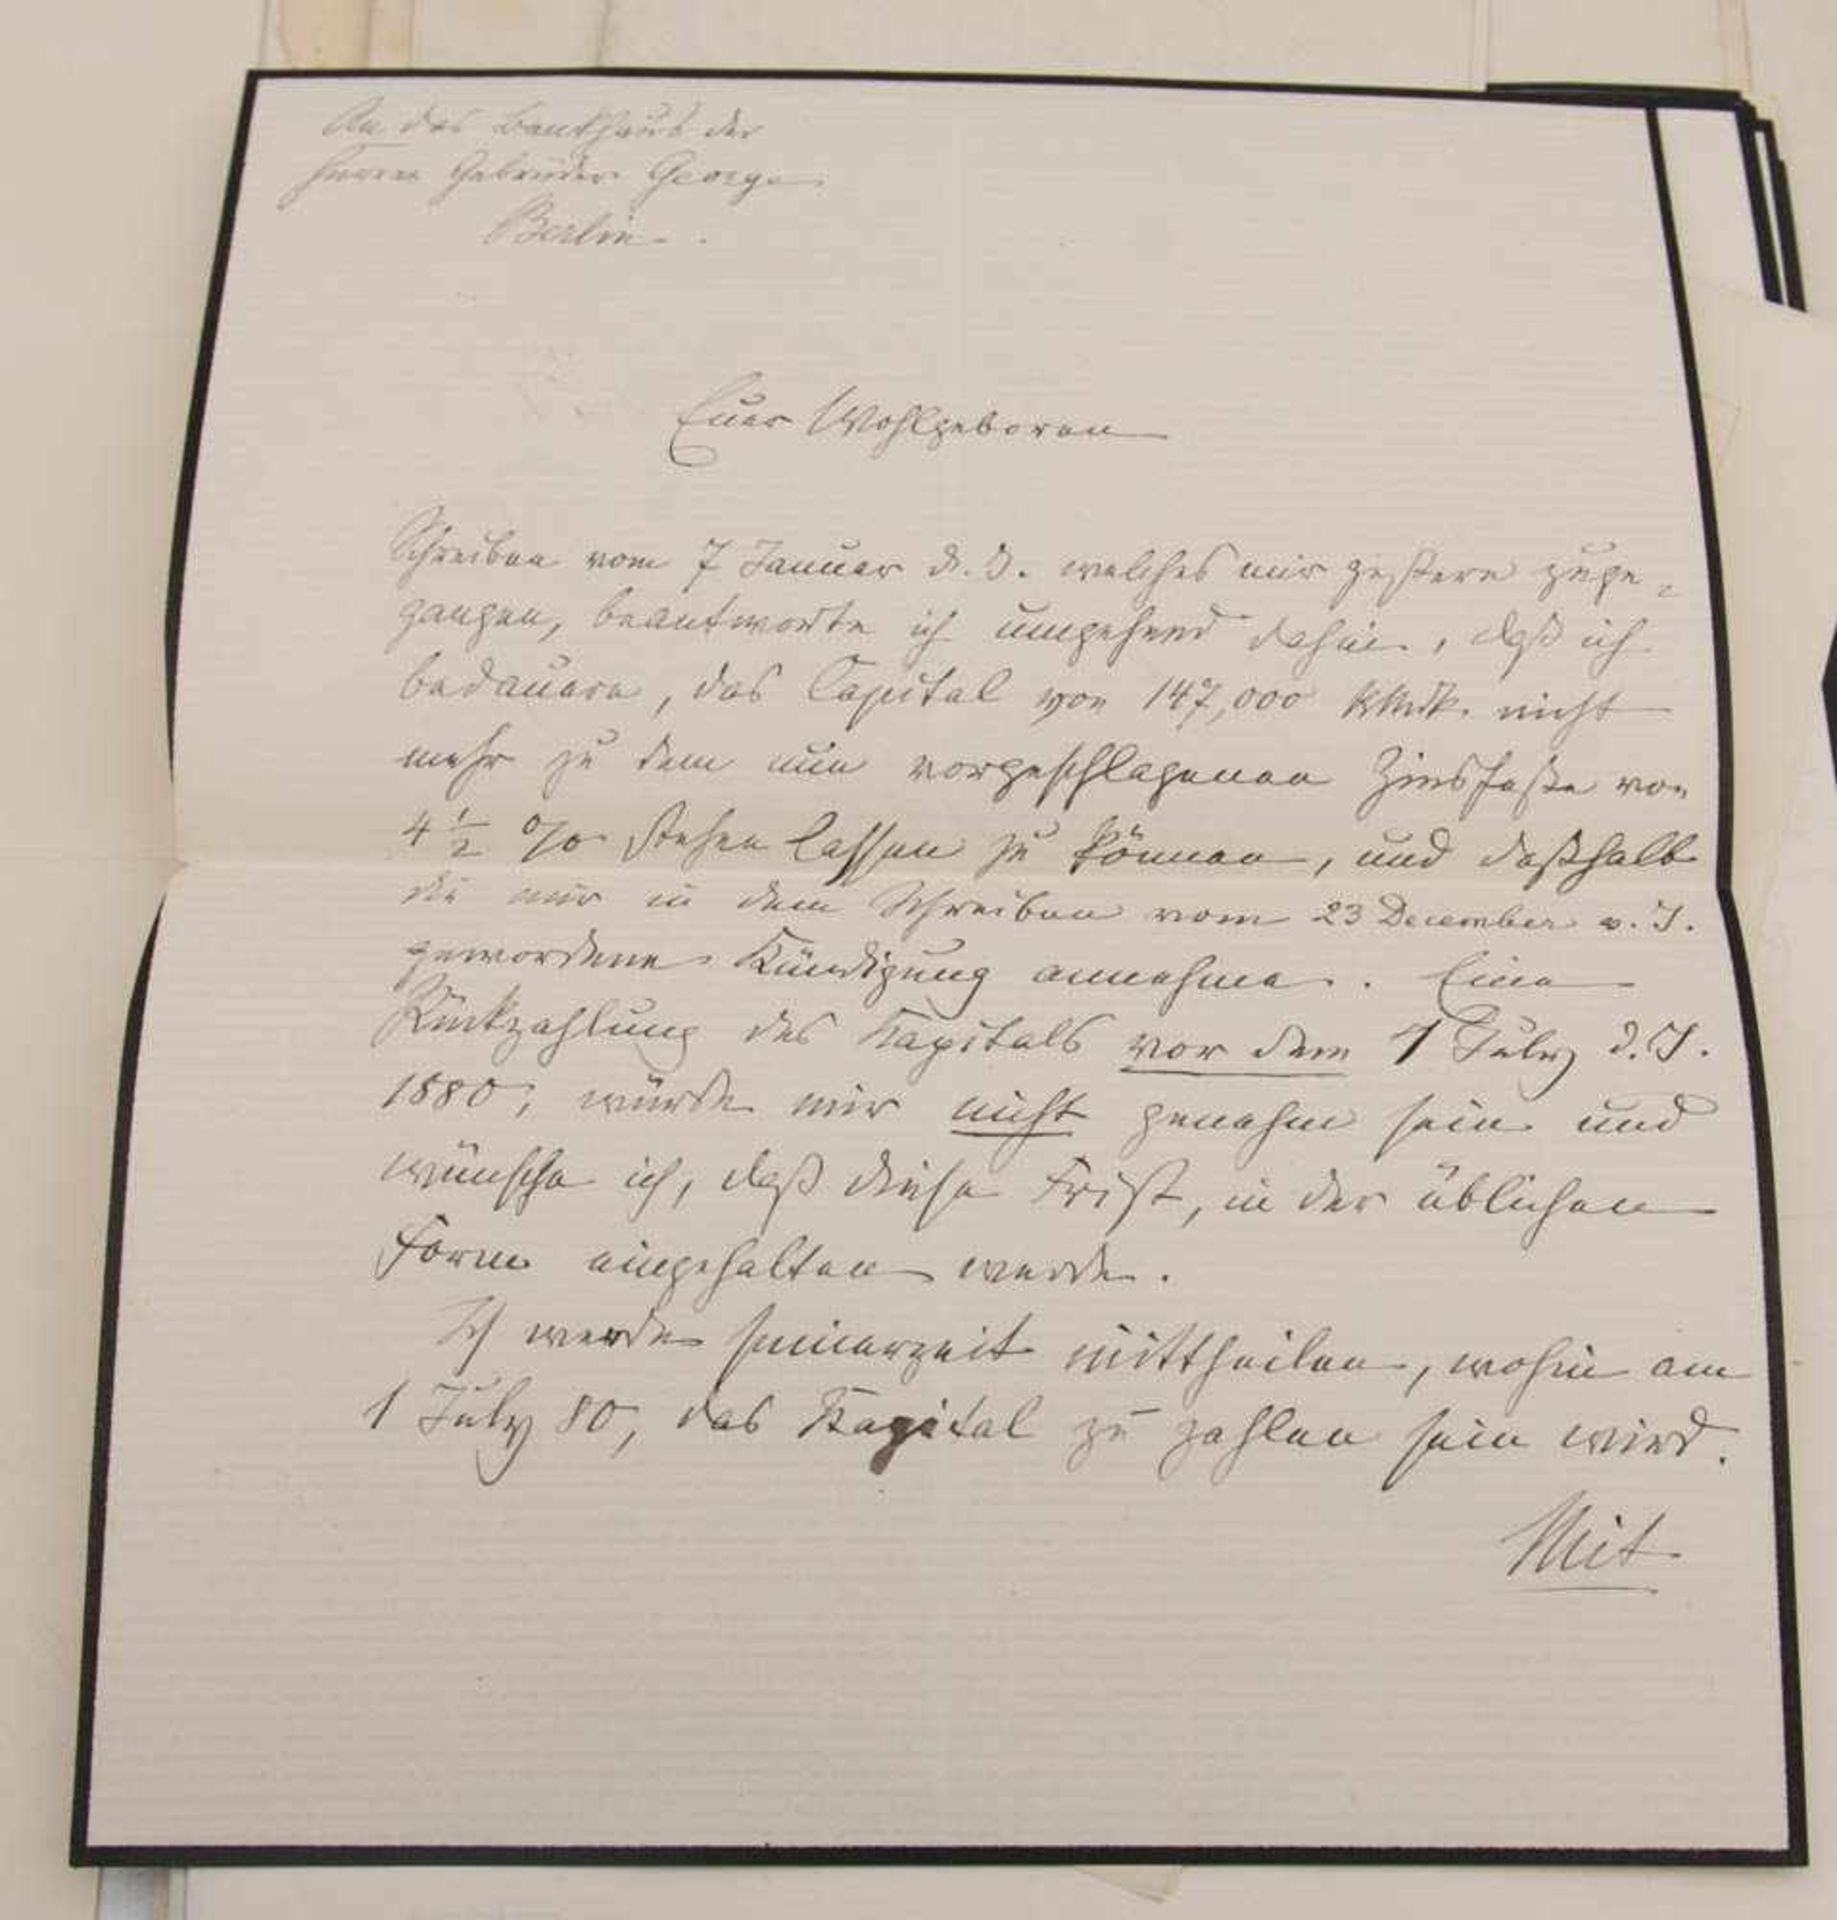 An das Bankhaus der
Herren Gebrüder George
Berlin.
Euer Wohlgeboren
Schreiben vom 7 Januar d. J. welches mir gestern zuge-
gangen, beantworte ich umgehend dahin, daß ich
bedauere, das Capital von 147,000 RMk. nicht
mehr zu dem nun vorgeschlagenen Zinsfuße von
4 1/2 % stehen lassen zu können, und deßhalb
die mir in dem Schreiben vom 23 December v. J.
gewordene Kündigung annehme. Eine
Rückzahlung des Kapitals vor dem 1 July d. J.
1880, würde mir nicht genehm sein und
wünsche ich, daß diese Frist, in der üblichen
Form eingehalten werde.
Ich werde seinerzeit mittheilen, wohin am
1 July 80, das Kapital zu zahlen sein wird.
Mit